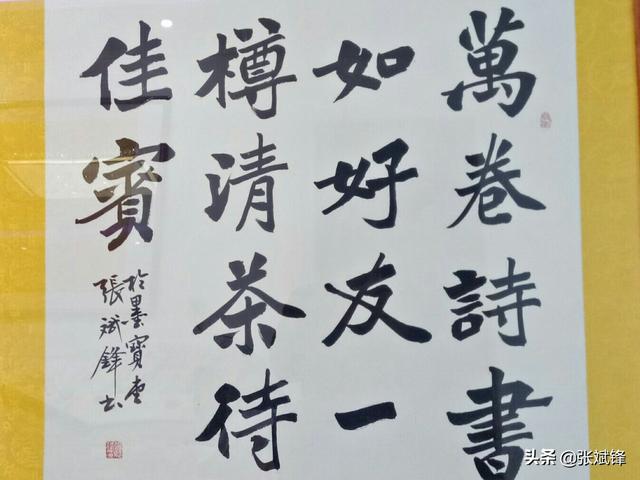 萬卷詩書
如好友一
樽清茶待
佳賓
於墨寶堂
張斌鋒書
头条 @张斌锋